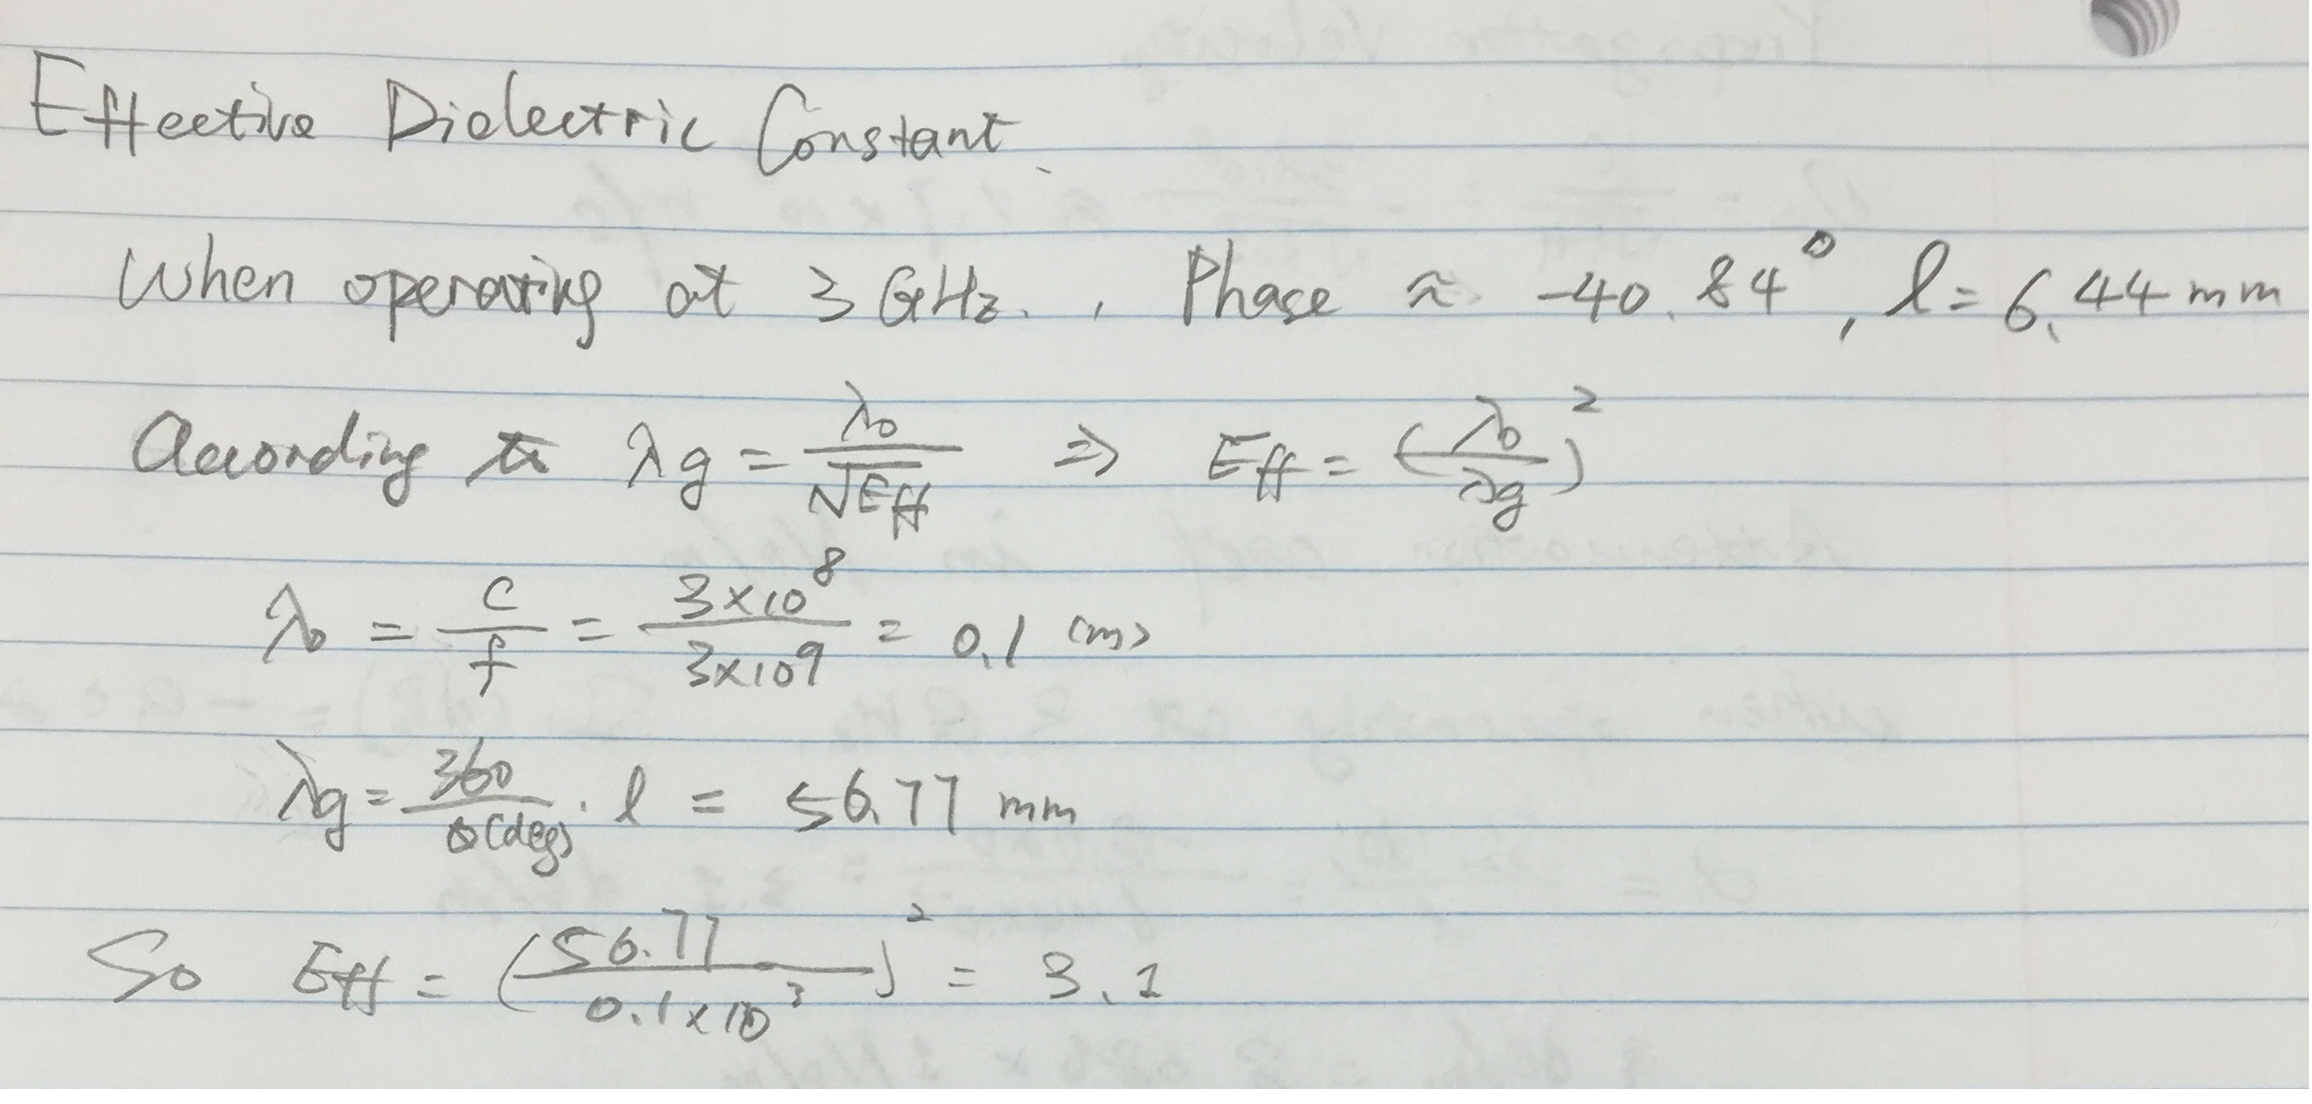 Effective Dielectric Constant.
When operating at 3 GHz. , Phase ≈ -40.84°, l = 6.44 mm
According to λg = λ0 / √Eff ⇒ Eff = (λ0 / λg)²
λ0 = c / f = 3×10⁸ / 3×10⁹ = 0.1 (m)
λg = 360 / θ(deg) · l = 56.77 mm
So Eff = (56.77 / 0.1×10³)² = 3.1